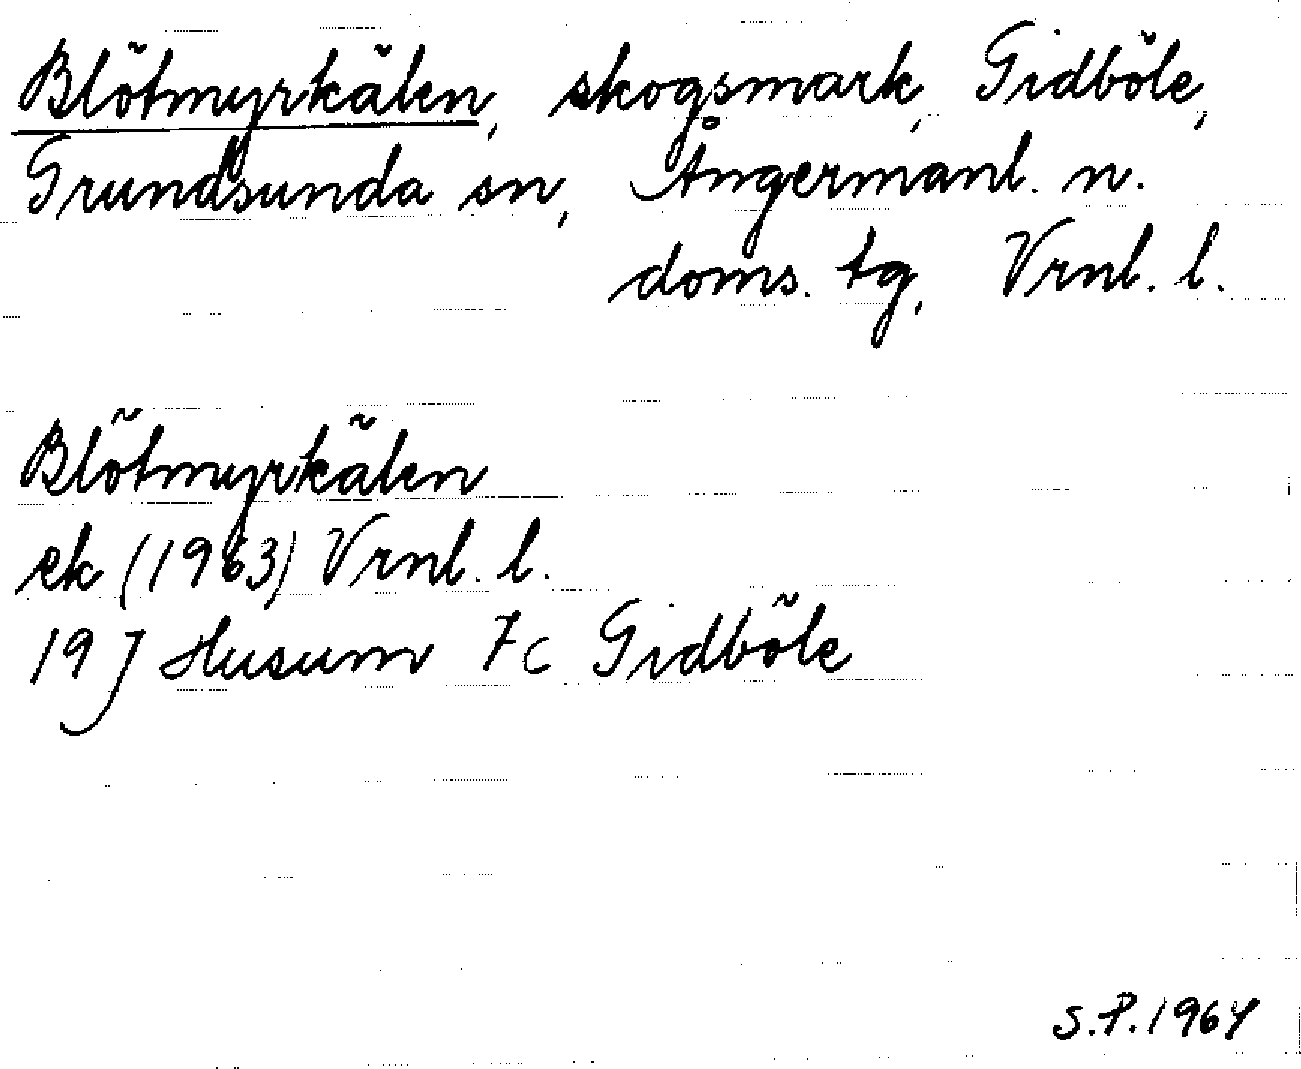 Blötmyrkälen, skogsmark, Gidböle,
Grundsunda sn, Ångermanl. n.
doms. tg, Vrnl. l.
Blötmyrkälen
ek (1963) Vrnl. l.
19 J Husum 7c Gidböle
S.P. 1964